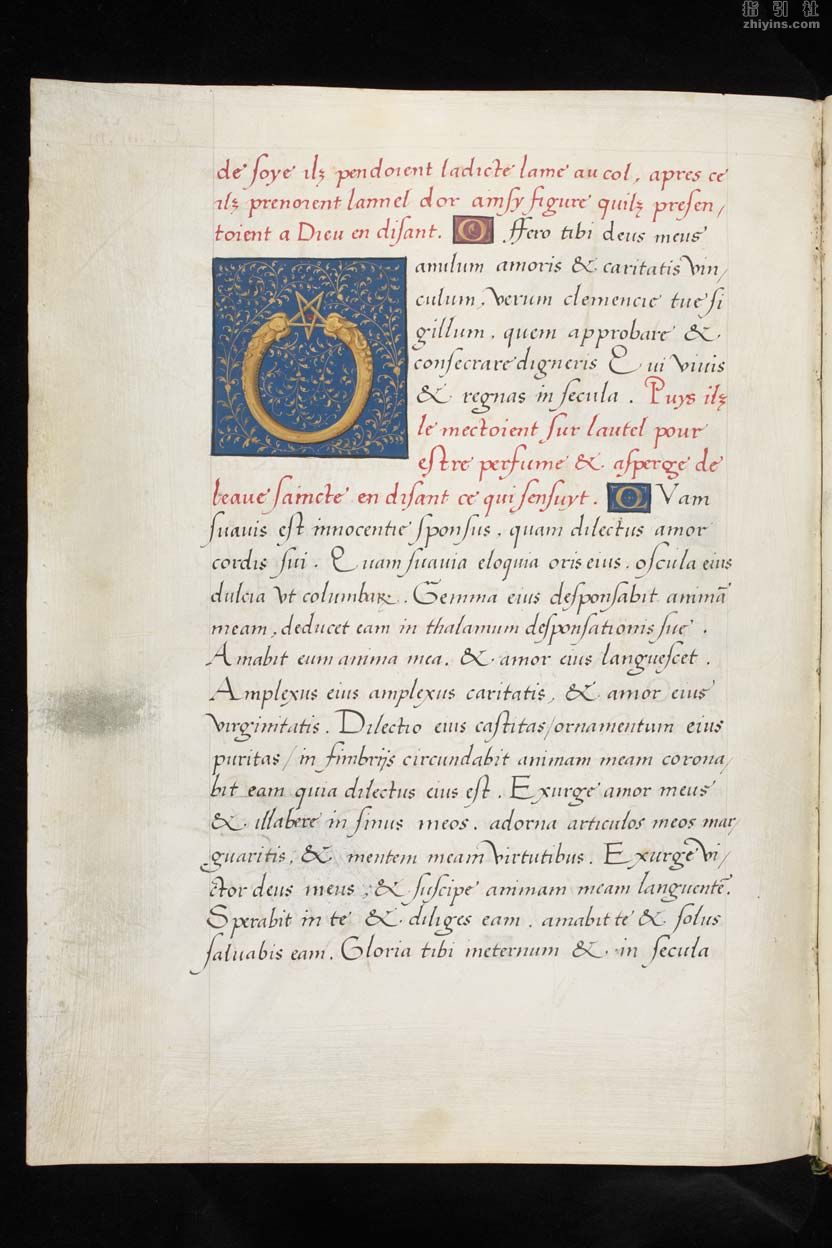 指引社
zhiyins.com
de soye ilz pendoient ladicte lame au col, apres ce
ilz prenoient lannel dor ainsy figure quilz presen/
toient a Dieu en disant. O ffero tibi deus meus
anulum amoris & caritatis vin/
culum, verum clemencie tue si
gillum, quem approbare &
consecrare digneris Qui viuis
& regnas in secula. Puys ilz
le mectoient sur lautel pour
estre perfume & asperge de
leaue saincte en disant ce qui sensuyt. Q Vam
suauis est innocentie sponsus, quam dilectus amor
cordis sui. Quam suauia eloquia oris eius, oscula eius
dulcia vt columbaꝝ. Gemma eius desponsabit animã
meam, deducet eam in thalamum desponsationis sue.
Amabit eum anima mea, & amor eius languescet.
Amplexus eius amplexus caritatis, & amor eius
virginitatis. Dilectio eius castitas/ornamentum eius
puritas/in fimbrijs circundabit animam meam corona/
bit eam quia dilectus eius est. Exurge amor meus
& illabere in sinus meos, adorna articulos meos mar/
guaritis, & mentem meam virtutibus. Exurge vi/
ctor deus meus, & suscipe animam meam languentẽ.
Sperabit in te & diliges eam, amabit te & solus
saluabis eam. Gloria tibi ineternum & in secula